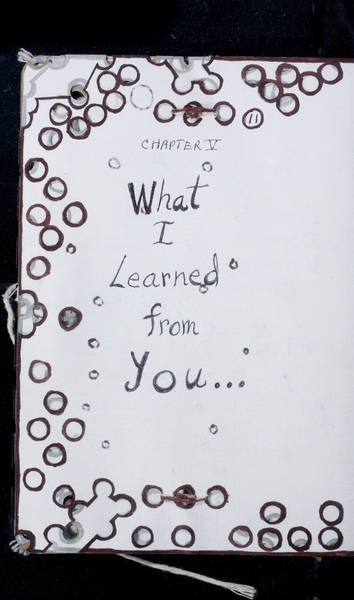 11
CHAPTER V
What
I
Learned
from
You...